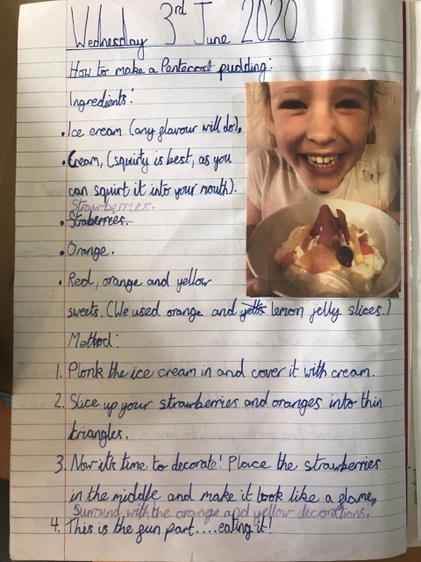 Wednesday 3rd June 2020
How to make a Pentecost pudding:
Ingredients:
• Ice cream (any flavour will do).
• Cream, (squirty is best, as you
can squirt it into your mouth).
Strawberries.
• Straberries.
• Orange.
• Red, orange and yellow
sweets. (We used orange and lemon jelly slices.)
Method:
1. Plonk the ice cream in and cover it with cream.
2. Slice up your strawberries and oranges into thin
triangles.
3. Now it's time to decorate! Place the strawberries
in the middle and make it look like a flame,
surround with the orange and yellow decorations.
4. This is the fun part....eating it!